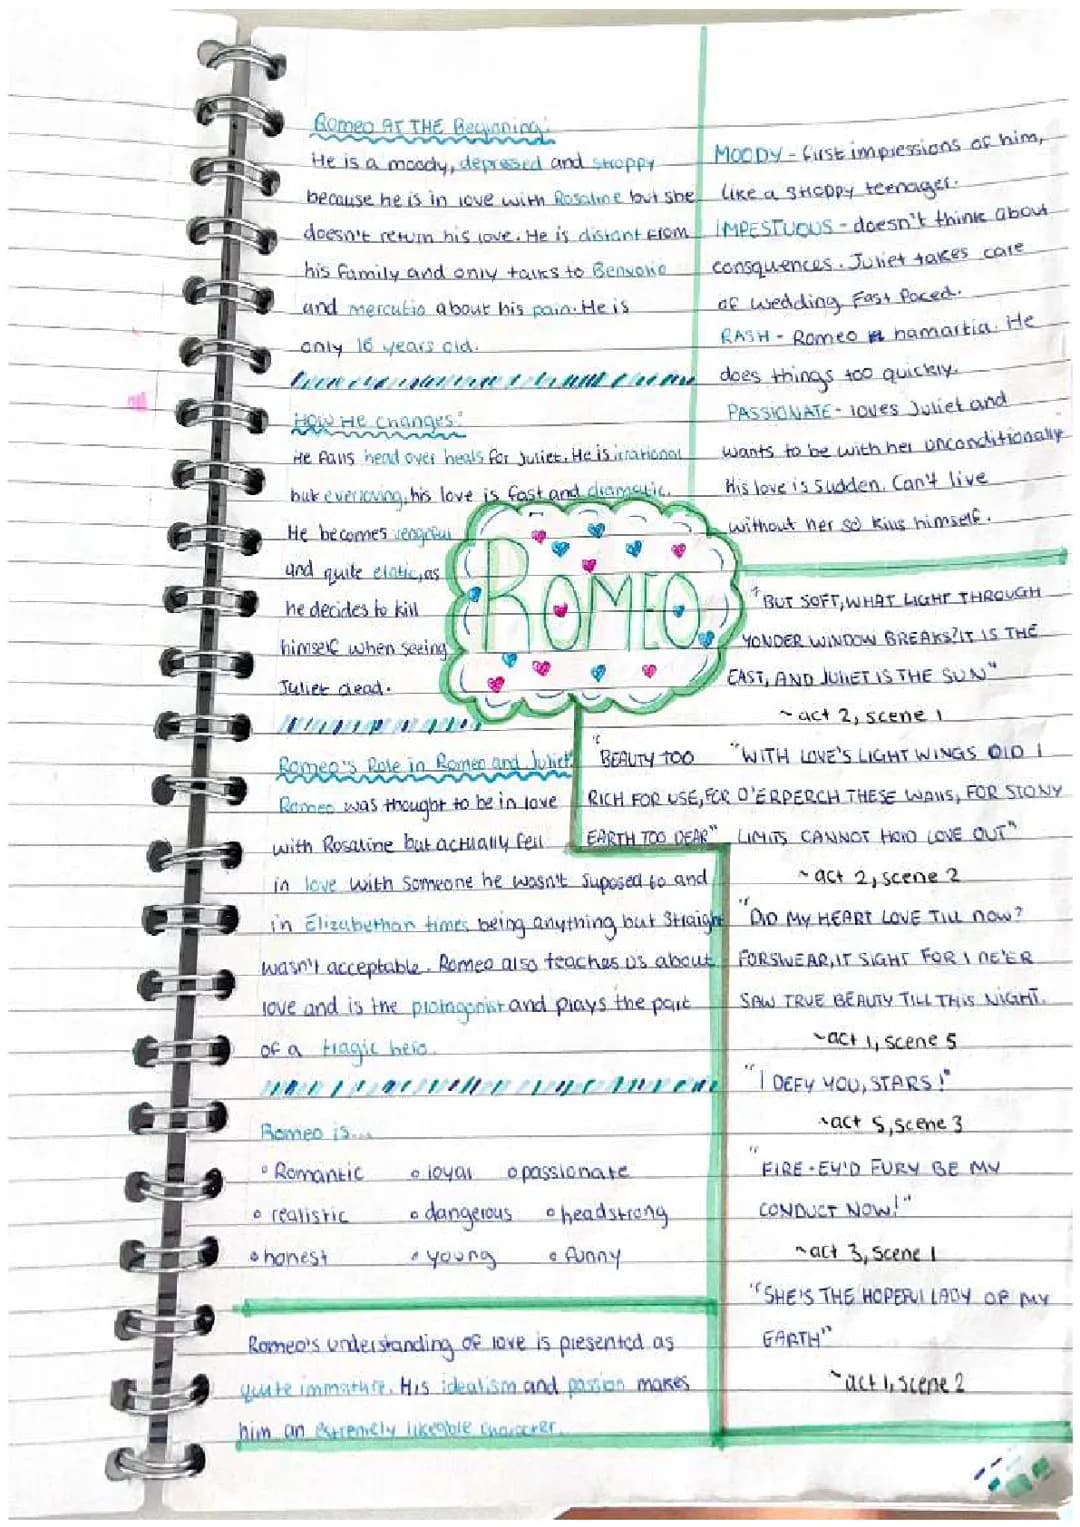 Romeo AT THE Beginning:
He is a moody, depressed and stroppy
because he is in love with Rosaline but she
doesn't return his love. He is distant from
his family and only talks to Benvolio
and mercutio about his pain. He is
only 16 years old.
How He changes:
He falls head over heals for Juliet. He is irrational
but everloving, his love is fast and dramatic.
He becomes vengeful
and quite elatic, as
he decides to kill
himself when seeing
Juliet dead.
Romeo's Role in Romeo and Juliet
Romeo was thought to be in love
with Rosaline but actually fell
in love with someone he wasn't suposed to and
in Elizabethan times being anything but straight
wasn't acceptable. Romeo also teaches us about
love and is the protagonist and plays the part
of a tragic hero.
Romeo is...
Romantic loyal passionate
realistic dangerous headstrong
honest young funny
Romeo's understanding of love is presented as
quite immature. His idealism and passion makes
him an extremely likeable character.
ROMEO
MOODY - first impressions of him,
like a stroppy teenager.
IMPESTUOUS - doesn't think about
consquences. Juliet takes care
of wedding. Fast paced.
RASH - Romeo hamartia. He
does things too quickly.
PASSIONATE - loves Juliet and
wants to be with her unconditionally
His love is sudden. Can't live
without her so kills himself.
"BUT SOFT, WHAT LIGHT THROUGH
YONDER WINDOW BREAKS? IT IS THE
EAST, AND JULIET IS THE SUN"
~ act 2, scene 1
"BEAUTY TOO
RICH FOR USE, FOR
EARTH TOO DEAR"
"WITH LOVE'S LIGHT WINGS DID I
O'ERPERCH THESE WALLS, FOR STONY
LIMITS CANNOT HOLD LOVE OUT"
~ act 2, scene 2
"DID MY HEART LOVE TILL NOW?
FORSWEAR, IT SIGHT FOR I NE'ER
SAW TRUE BEAUTY TILL THIS NIGHT.
~act 1, scene 5
"I DEFY YOU, STARS!"
~act 5, scene 3
"FIRE-EY'D FURY BE MY
CONDUCT NOW!"
~act 3, scene 1
"SHE'S THE HOPEFUL LADY OF MY
EARTH"
~act 1, scene 2